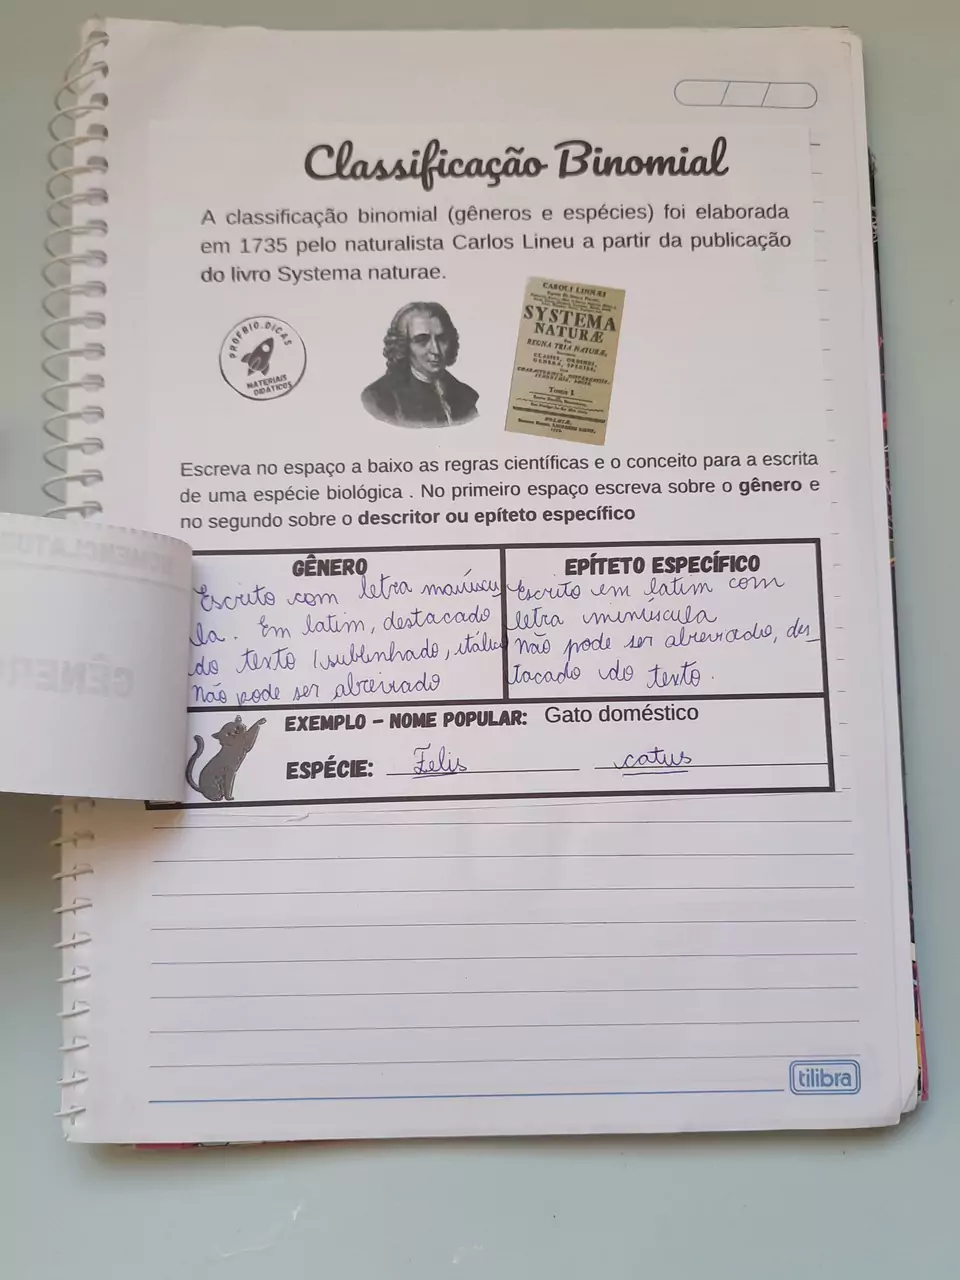 Classificação Binomial
A classificação binomial (gêneros e espécies) foi elaborada
em 1735 pelo naturalista Carlos Lineu a partir da publicação
do livro Systema naturae.
PROFBIO.DICAS
MATERIAIS
DIDÁTICOS
CAROLI LINNÆI
SYSTEMA
NATURÆ
REGNA TRIA NATURÆ,
Tomus I
Escreva no espaço a baixo as regras científicas e o conceito para a escrita
de uma espécie biológica . No primeiro espaço escreva sobre o gênero e
no segundo sobre o descritor ou epíteto específico
GÊNERO
Escrito com letra maiúscu_
la. Em latim, destacado
do texto (sublinhado, itálico
Não pode ser abreirado
EPÍTETO ESPECÍFICO
Escrito em latim com
letra minúscula
não pode ser abreviado, des_
tacado do texto.
EXEMPLO - NOME POPULAR: Gato doméstico
ESPÉCIE: Felis catus
tilibra